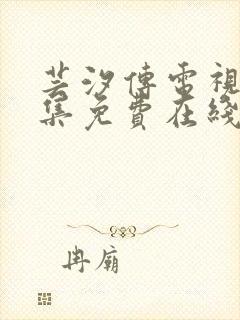 芸汐傳電視
集免費在綫
冉廟